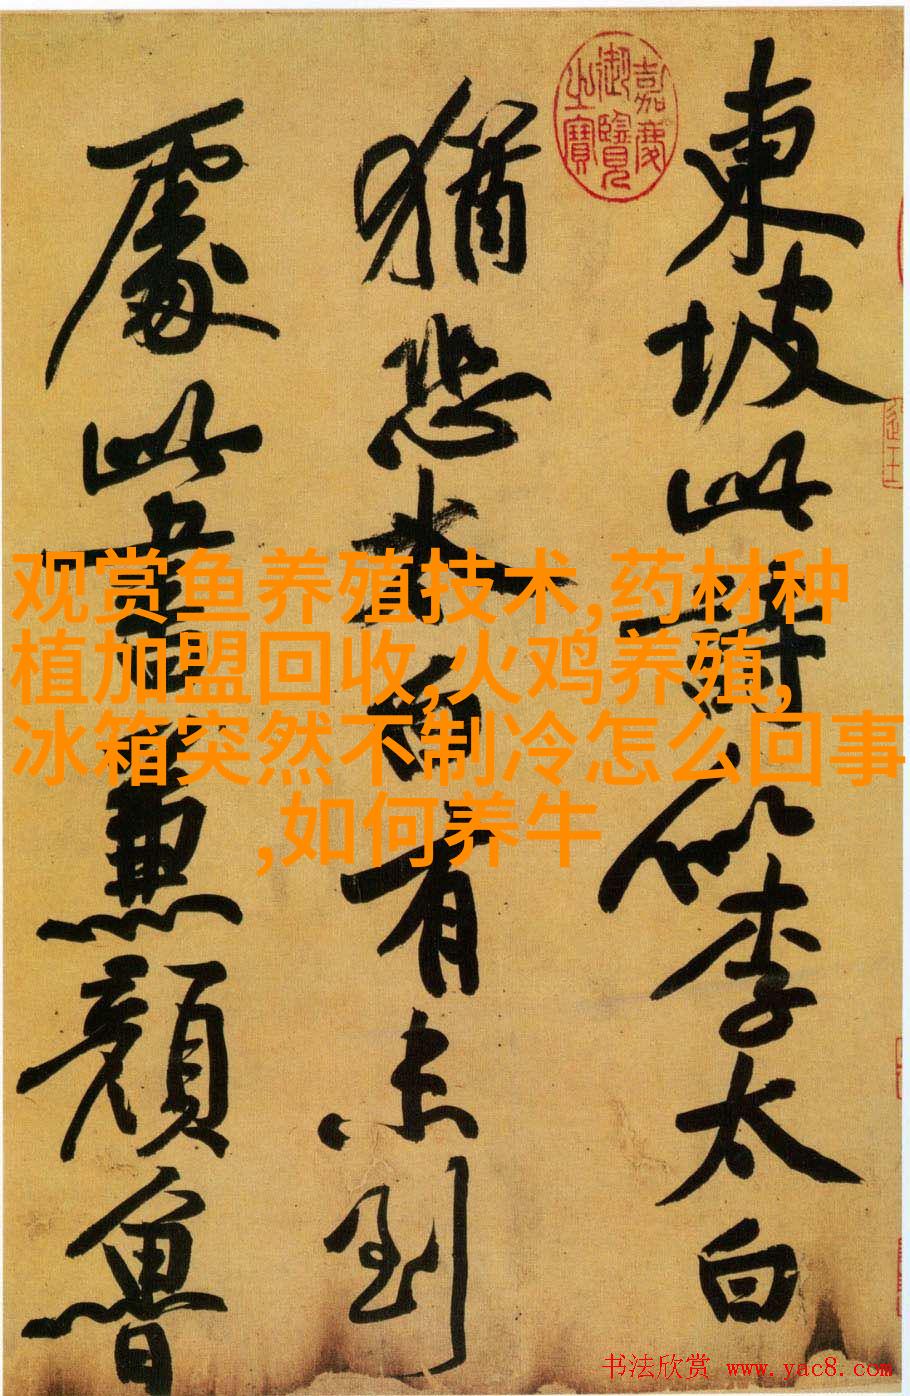 東坡此詩似李太白
猶恐太白有未到
處此書兼顏魯
嘉慶
御覽
之寶
观赏鱼养殖技术,药材种
植加盟回收,火鸡养殖,
冰箱突然不制冷怎么回事
,如何养牛
书法欣赏 www.yac8.com